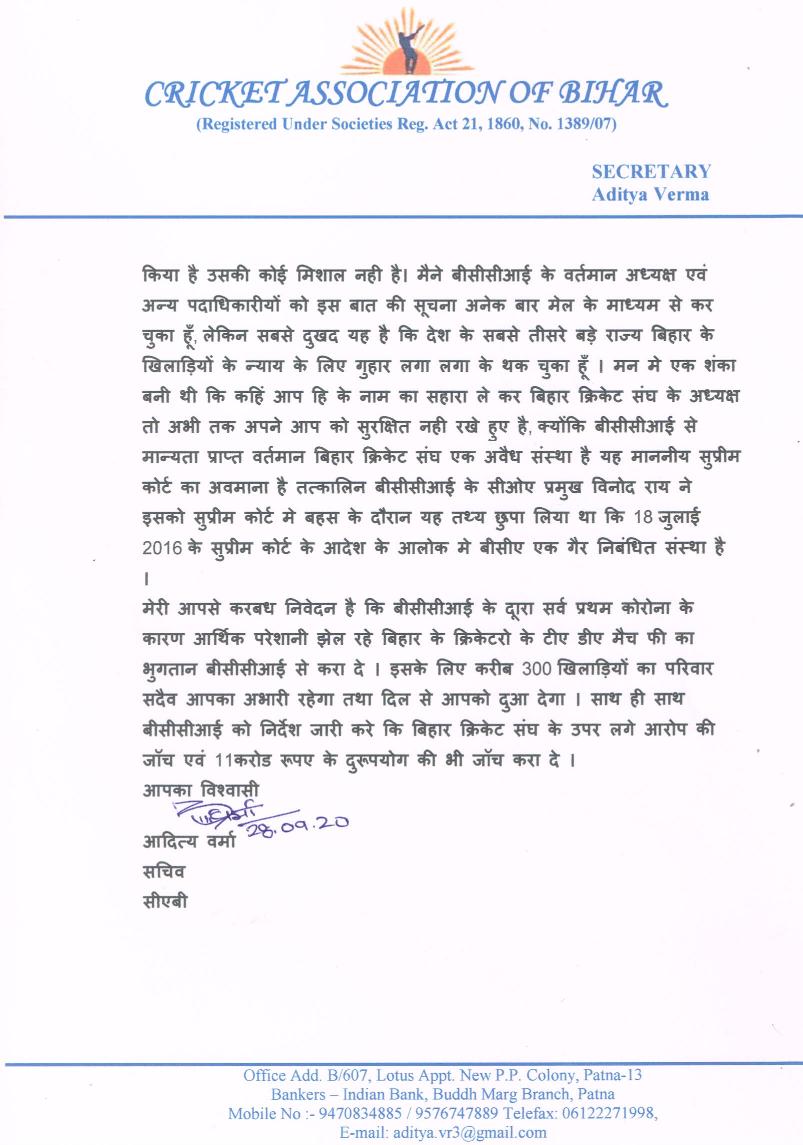 CRICKET ASSOCIATION OF BIHAR
(Registered Under Societies Reg. Act 21, 1860, No. 1389/07)
SECRETARY
Aditya Verma
किया है उसकी कोई मिशाल नही है। मैने बीसीसीआई के वर्तमान अध्यक्ष एवं
अन्य पदाधिकारीयों को इस बात की सूचना अनेक बार मेल के माध्यम से कर
चुका हूँ, लेकिन सबसे दुखद यह है कि देश के सबसे तीसरे बड़े राज्य बिहार के
खिलाड़ियों के न्याय के लिए गुहार लगा लगा के थक चुका हूँ । मन मे एक शंका
बनी थी कि कहिं आप हि के नाम का सहारा ले कर बिहार क्रिकेट संघ के अध्यक्ष
तो अभी तक अपने आप को सुरक्षित नही रखे हुए है, क्योंकि बीसीसीआई से
मान्यता प्राप्त वर्तमान बिहार क्रिकेट संघ एक अवैध संस्था है यह माननीय सुप्रीम
कोर्ट का अवमाना है तत्कालिन बीसीसीआई के सीओए प्रमुख विनोद राय ने
इसको सुप्रीम कोर्ट मे बहस के दौरान यह तथ्य छुपा लिया था कि 18 जुलाई
2016 के सुप्रीम कोर्ट के आदेश के आलोक मे बीसीए एक गैर निबंधित संस्था है
।
मेरी आपसे करबध निवेदन है कि बीसीसीआई के द्वारा सर्व प्रथम कोरोना के
कारण आर्थिक परेशानी झेल रहे बिहार के क्रिकेटरो के टीए डीए मैच फी का
भुगतान बीसीसीआई से करा दे । इसके लिए करीब 300 खिलाड़ियों का परिवार
सदैव आपका अभारी रहेगा तथा दिल से आपको दुआ देगा । साथ ही साथ
बीसीसीआई को निर्देश जारी करे कि बिहार क्रिकेट संघ के उपर लगे आरोप की
जॉच एवं 11करोड रूपए के दुरूपयोग की भी जॉच करा दे ।
आपका विश्वासी
28.09.20
आदित्य वर्मा
सचिव
सीएबी
Office Add. B/607, Lotus Appt. New P.P. Colony, Patna-13
Bankers – Indian Bank, Buddh Marg Branch, Patna
Mobile No :- 9470834885 / 9576747889 Telefax: 06122271998,
E-mail: aditya.vr3@gmail.com